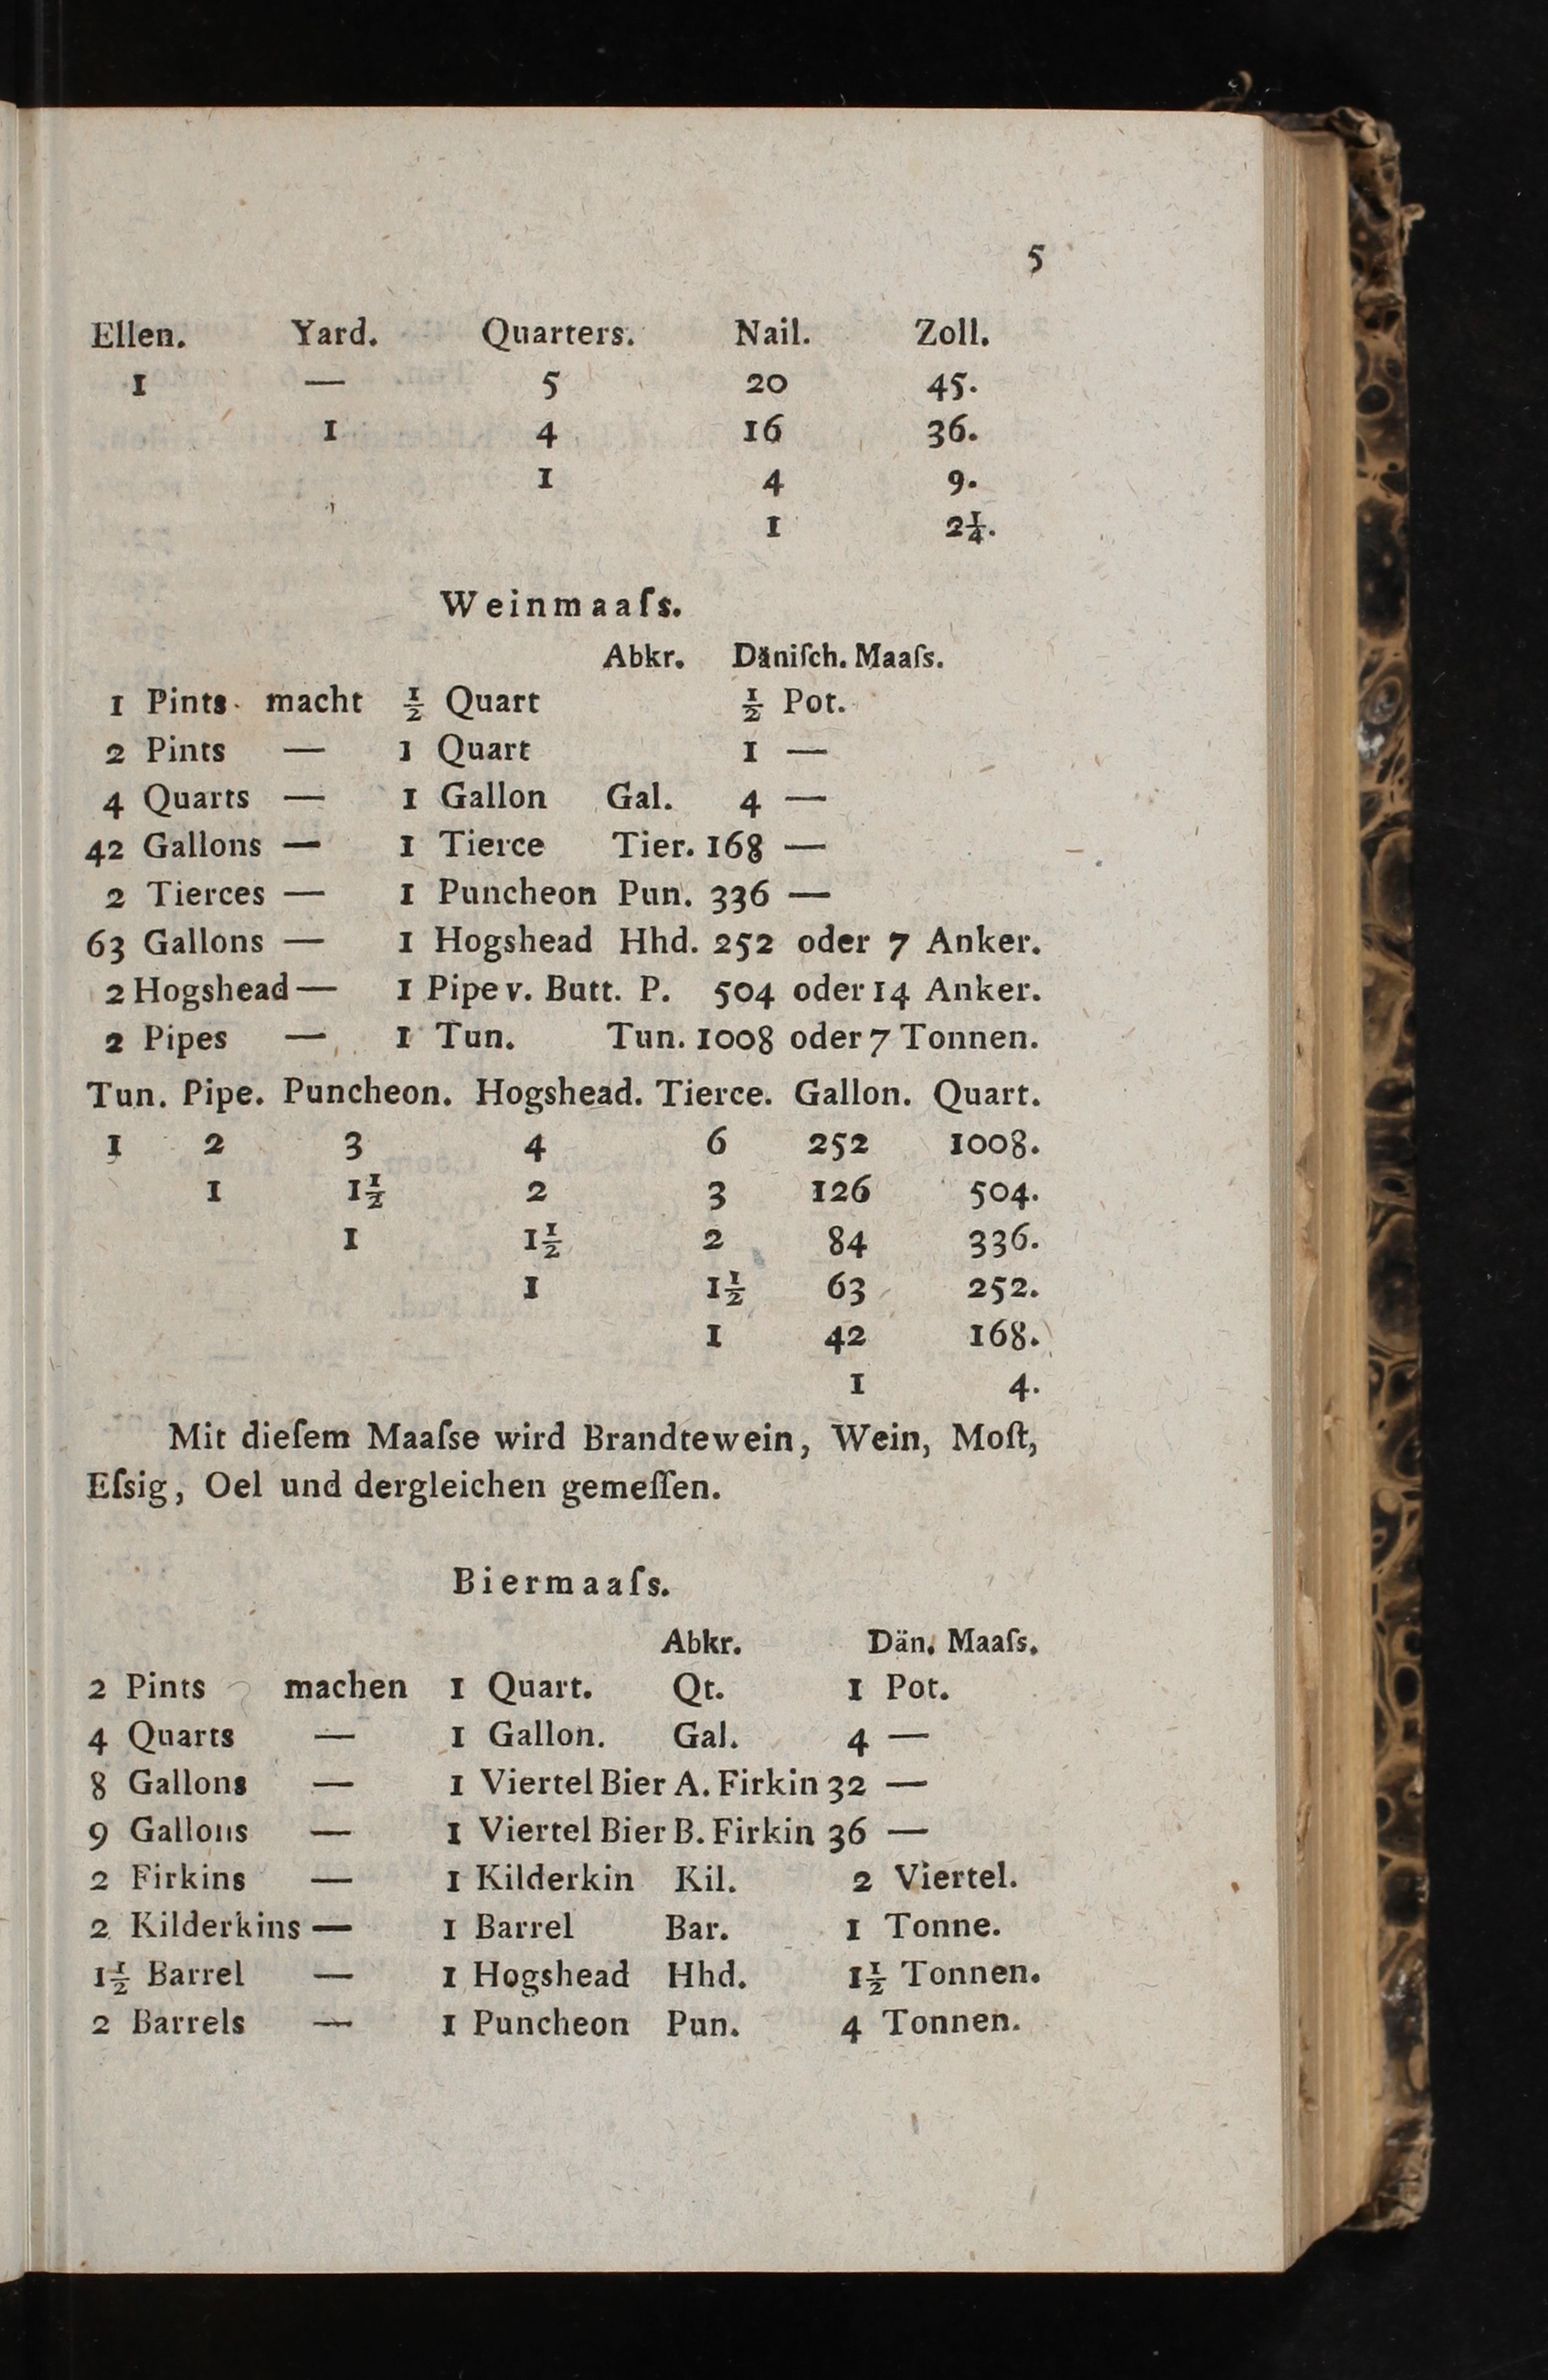 5
Ellen. Yard. Quarters. Nail. Zoll.
1 — 5 20 45.
1 4 16 36.
1 4 9.
1 2¼.
Weinmaaſs.
Abkr. Däniſch. Maaſs.
1 Pints macht ½ Quart ½ Pot.
2 Pints — 1 Quart 1 —
4 Quarts — 1 Gallon Gal. 4 —
42 Gallons — 1 Tierce Tier. 168 —
2 Tierces — 1 Puncheon Pun. 336 —
63 Gallons — 1 Hogshead Hhd. 252 oder 7 Anker.
2 Hogshead — 1 Pipe v. Butt. P. 504 oder 14 Anker.
2 Pipes — 1 Tun. Tun. 1008 oder 7 Tonnen.
Tun. Pipe. Puncheon. Hogshead. Tierce. Gallon. Quart.
1 2 3 4 6 252 1008.
1 1½ 2 3 126 504.
1 1½ 2 84 336.
1 1½ 63 252.
1 42 168.
1 4.
Mit dieſem Maaſse wird Brandtewein, Wein, Moſt,
Eſsig, Oel und dergleichen gemeſſen.
Biermaaſs.
Abkr. Dän. Maaſs.
2 Pints machen 1 Quart. Qt. 1 Pot.
4 Quarts — 1 Gallon. Gal. 4 —
8 Gallons — 1 Viertel Bier A. Firkin 32 —
9 Gallons — 1 Viertel Bier B. Firkin 36 —
2 Firkins — 1 Kilderkin Kil. 2 Viertel.
2 Kilderkins — 1 Barrel Bar. 1 Tonne.
1½ Barrel — 1 Hogshead Hhd. 1½ Tonnen.
2 Barrels — 1 Puncheon Pun. 4 Tonnen.